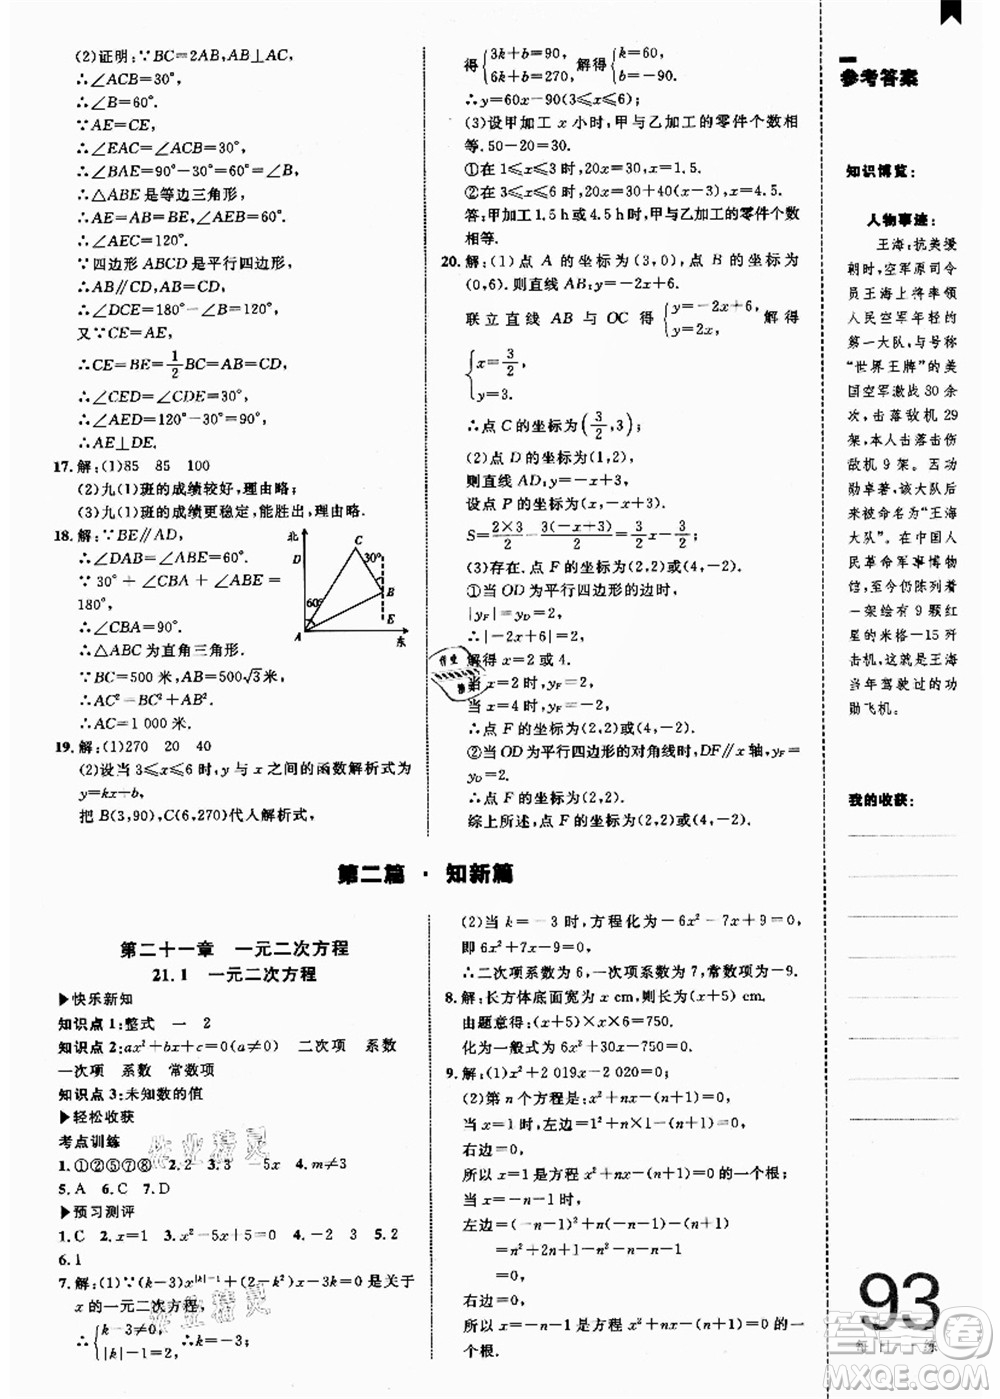 (2)证明:∵BC=2AB,AB⊥AC,
∴∠ACB=30°.
∴∠B=60°.
∵AE=CE,
∴∠EAC=∠ACE=30°.
∴∠BAE=90°-30°=60°.
∴△ABE是等边三角形,
∴AE=AB=BE,
∴∠AEC=120°.
∵四边形ABCD是平行四边形,
∴AB∥CD,AB=CD.
∴∠DCE=180°-∠B=120°.
又∵CE=AE,
∴CE=BE=1/2BC=AB=CD.
∴∠CED=∠CDE=30°.
∴∠AED=120°-30°=90°.
∴AE⊥DE.
17.解:(1)85 85 100
(2)九(1)班的成绩较好,理由略;
(3)九(1)班的成绩更稳定,能胜出,理由略.
18.解:∵BE∥AD,
∴∠DAB=∠ABE=60°.
∵30°+∠CBA+∠ABE=180°,
∴∠CBA=90°.
∴△ABC为直角三角形.
∵BC=500米,AB=500√3米,
∴AC²=BC²+AB².
∴AC=1 000米.
北
D
C
30°
60°
B
A
E
东
19.解:(1)270 20 40
(2)设当3≤x≤6时,y与x之间的函数解析式为
y=kx+b,
把B(3,90),C(6,270)代入解析式,
得{3k+b=90, 6k+b=270, 解得{k=60, b=-90.
∴y=60x-90(3≤x≤6).
(3)设甲加工x小时,甲与乙加工的零件个数相
等.50-20=30.
①在1≤x≤3时,20x=30,x=1.5.
②在3≤x≤6时,20x=30+40(x-3),x=4.5.
答:甲加工1.5h或4.5h时,甲与乙加工的零件个数
相等.
20.解:(1)点A的坐标为(3,0),点B的坐标为
(0,6).则直线AB:y=-2x+6.
联立直线AB与OC得{y=-2x+6, y=2x, 解得
{x=3/2, y=3.
∴点C的坐标为(3/2,3);
(2)点D的坐标为(1,2),
则直线AD:y=-x+3.
设点P的坐标为(x,-x+3).
S=2×3/2-3(-x+3)/2=3/2x-3/2.
(3)存在.点F的坐标为(2,2)或(4,-2).
①当OD为平行四边形的边时,
|y_F|=y_D=2.
∴|-2x+6|=2,
解得x=2或4.
当x=2时,y_F=2,
当x=4时,y_F=-2.
∴点F的坐标为(2,2)或(4,-2).
②当OD为平行四边形的对角线时,DF∥x轴,y_F
=y_D=2.
∴点F的坐标为(2,2).
综上所述,点F的坐标为(2,2)或(4,-2).
第二篇·知新篇
第二十一章 一元二次方程
21.1 一元二次方程
▶快乐新知
知识点1:整式 一 2
知识点2:ax²+bx+c=0(a≠0) 二次项 系数
一次项 系数 常数项
知识点3:未知数的值
▶轻松收获
考点训练
1.①②⑤⑦⑧ 2.2 3.-5x 4.m≠3
5.A 6.C 7.D
▶预习测评
1.C 2.A 3.A 4.D 5.x²-5x+5=0
6.1
7.解:(1)∵(k-3)x^(|k|-1)+(2k-1)x+9=0是关于
x的一元二次方程,
∴{k-3≠0, |k|-1=2, ∴k=-3.
(2)当k=-3时,方程化为-6x²-7x+9=0,
即6x²+7x-9=0,
∴二次项系数为6,一次项系数为7,常数项为-9.
8.解:长方体底面宽为x cm,则长为(x+5)cm.
由题意得:(x+5)×x×6=750.
化为一般式为6x²+30x-750=0.
9.解:(1)x²+2 019x-2 020=0;
(2)第n个方程是:x²+(n-1)x-n=0.
当x=1时,左边=1+n-1-n=0,
右边=0,
所以x=1是方程x²+(n-1)x-n=0的一个根;
当x=-n时,
左边=(-n)²+(n-1)(-n)-n
=n²-n²+n-n
=0,
右边=0.
所以x=-n是方程x²+(n-1)x-n=0的
一个根.
参考答案
知识博览:
人物事迹:
王海:抗美援
朝时,空军原司令
员王海上将率领
人民空军年轻的
第一大队,与号称
“世界王牌”的美
国空军激战30余
次,击落敌机29
架,本人击落击伤
敌机9架。因功
勋卓著,该大队后
来被命名为“王海
大队”。在中国人
民革命军事博物
馆,至今仍陈列着
一架绘有9颗红
星的米格-15歼
击机,这就是王海
当年驾驶过的功
勋飞机。
我的收获:
93